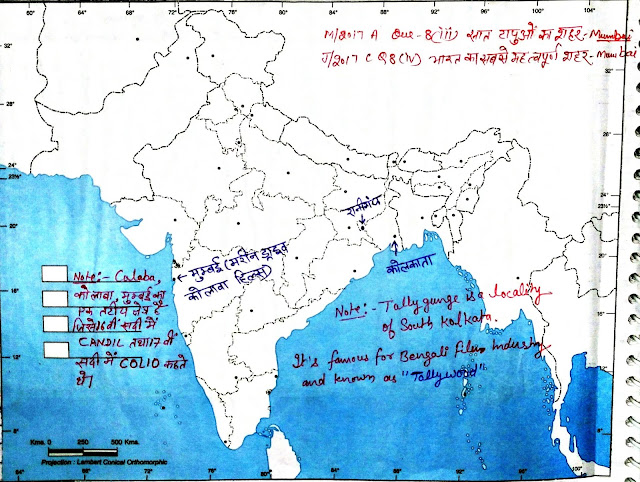 60° 64° 68° 72° 76° 80° 84° 88° 92° 96° 100° 104°
M/2017 A Que-8(iii) सात टापुओं का शहर - Mumbai
J/2017 C Q8(iv) भारत का सबसे महत्वपूर्ण शहर - Mumbai
32°
32°
28°
28°
24°
23½°
24°
23½°
20°
20°
16°
12°
12°
8°
8°
रानीगंज
कोलकाता
मुम्बई (मरीन ड्राइव
कोलावा हिल्स)
Note:- Colaba,
कोलावा, मुम्बई का
एक तटीय क्षेत्र है
जिसे 16वीं सदी में
CANDIL तथा वीं
सदी में COLIO कहते
थे।
Note:- Tallygunge is a locality
of South Kolkata.
It's famous for Bengali Film Industry
and known as "Tallywood"
Kms. 0 250 500 Kms.
Projection : Lambert Conical Orthomorphic
64° 68° 72° 76° 80° 84° 88° 92° 96° 100°